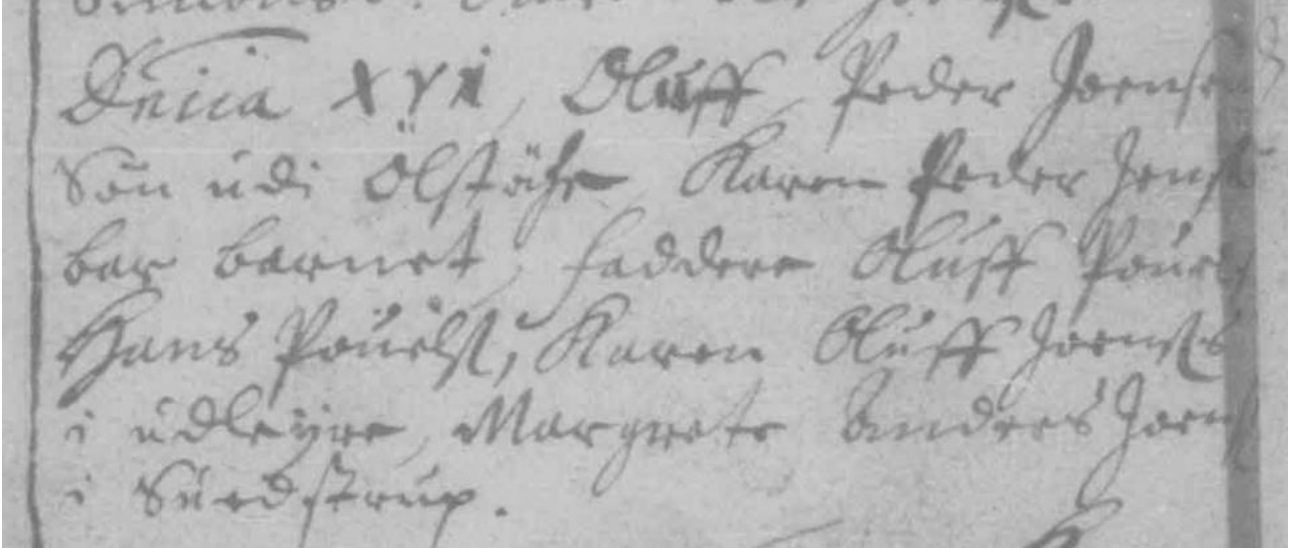 Dnica XVI, Oluff Peder Joens
Sön udi Ölstöche, Karen Peder Jens
bar barnet, faddere Oluff Pouels
Hans Pouelss, Karen Oluff Joenss
i udleyre, Margrete Anders Joens
i Suedstrup.